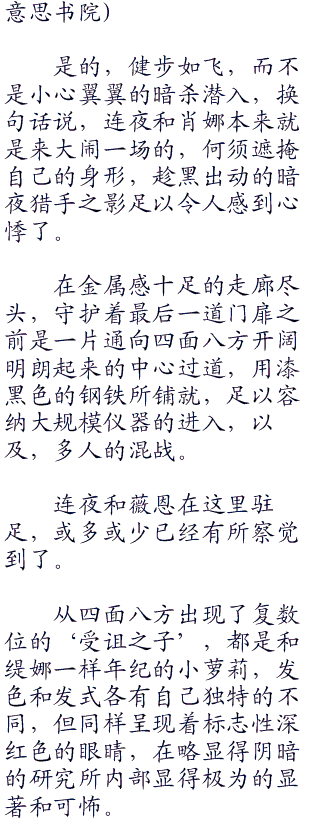 意思书院)
是的，健步如飞，而不
是小心翼翼的暗杀潜入，换
句话说，连夜和肖娜本来就
是来大闹一场的，何须遮掩
自己的身形，趁黑出动的暗
夜猎手之影足以令人感到心
悸了。
在金属感十足的走廊尽
头，守护着最后一道门扉之
前是一片通向四面八方开阔
明朗起来的中心过道，用漆
黑色的钢铁所铺就，足以容
纳大规模仪器的进入，以
及，多人的混战。
连夜和薇恩在这里驻
足，或多或少已经有所察觉
到了。
从四面八方出现了复数
位的‘受诅之子’，都是和
缇娜一样年纪的小萝莉，发
色和发式各有自己独特的不
同，但同样呈现着标志性深
红色的眼睛，在略显得阴暗
的研究所内部显得极为的显
著和可怖。